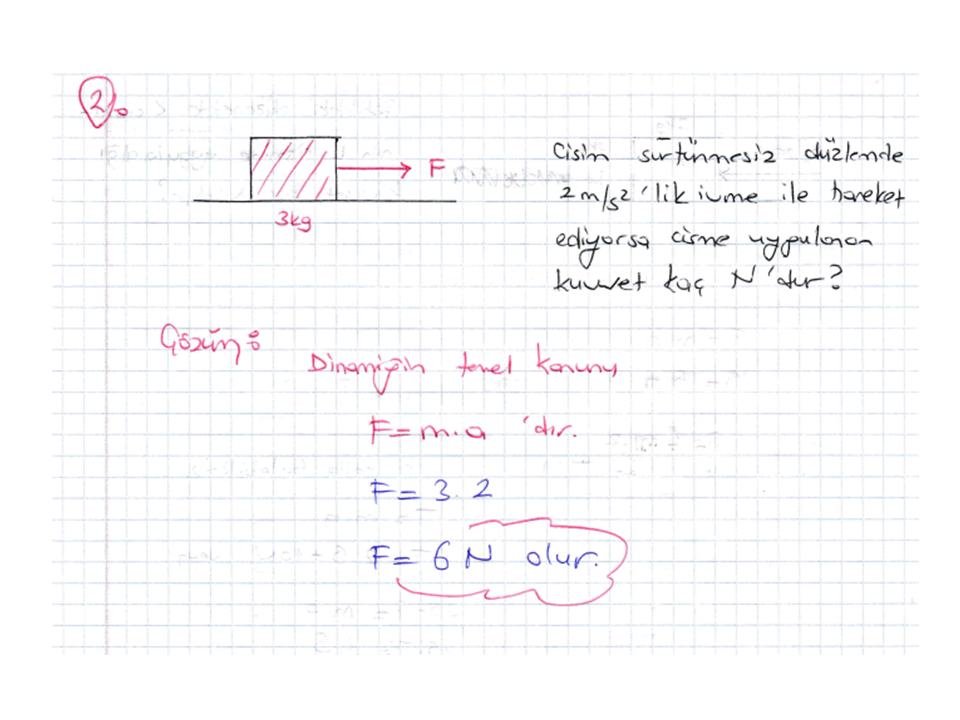 2.
F
3kg
Cisim sürtünmesiz düzlemde
2 m/s² 'lik ivme ile hareket
ediyorsa cisme uygulanan
kuvvet kaç N'dur?
Çözüm:
Dinamiğin temel kanunu
F = m.a 'dır.
F = 3.2
F = 6 N olur.